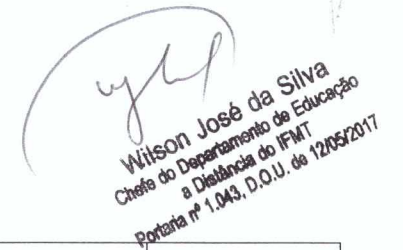 Wilson José da Silva
Chefe do Departamento de Educação
a Distância do IFMT
Portaria nº 1.043, D.O.U. de 12/05/2017